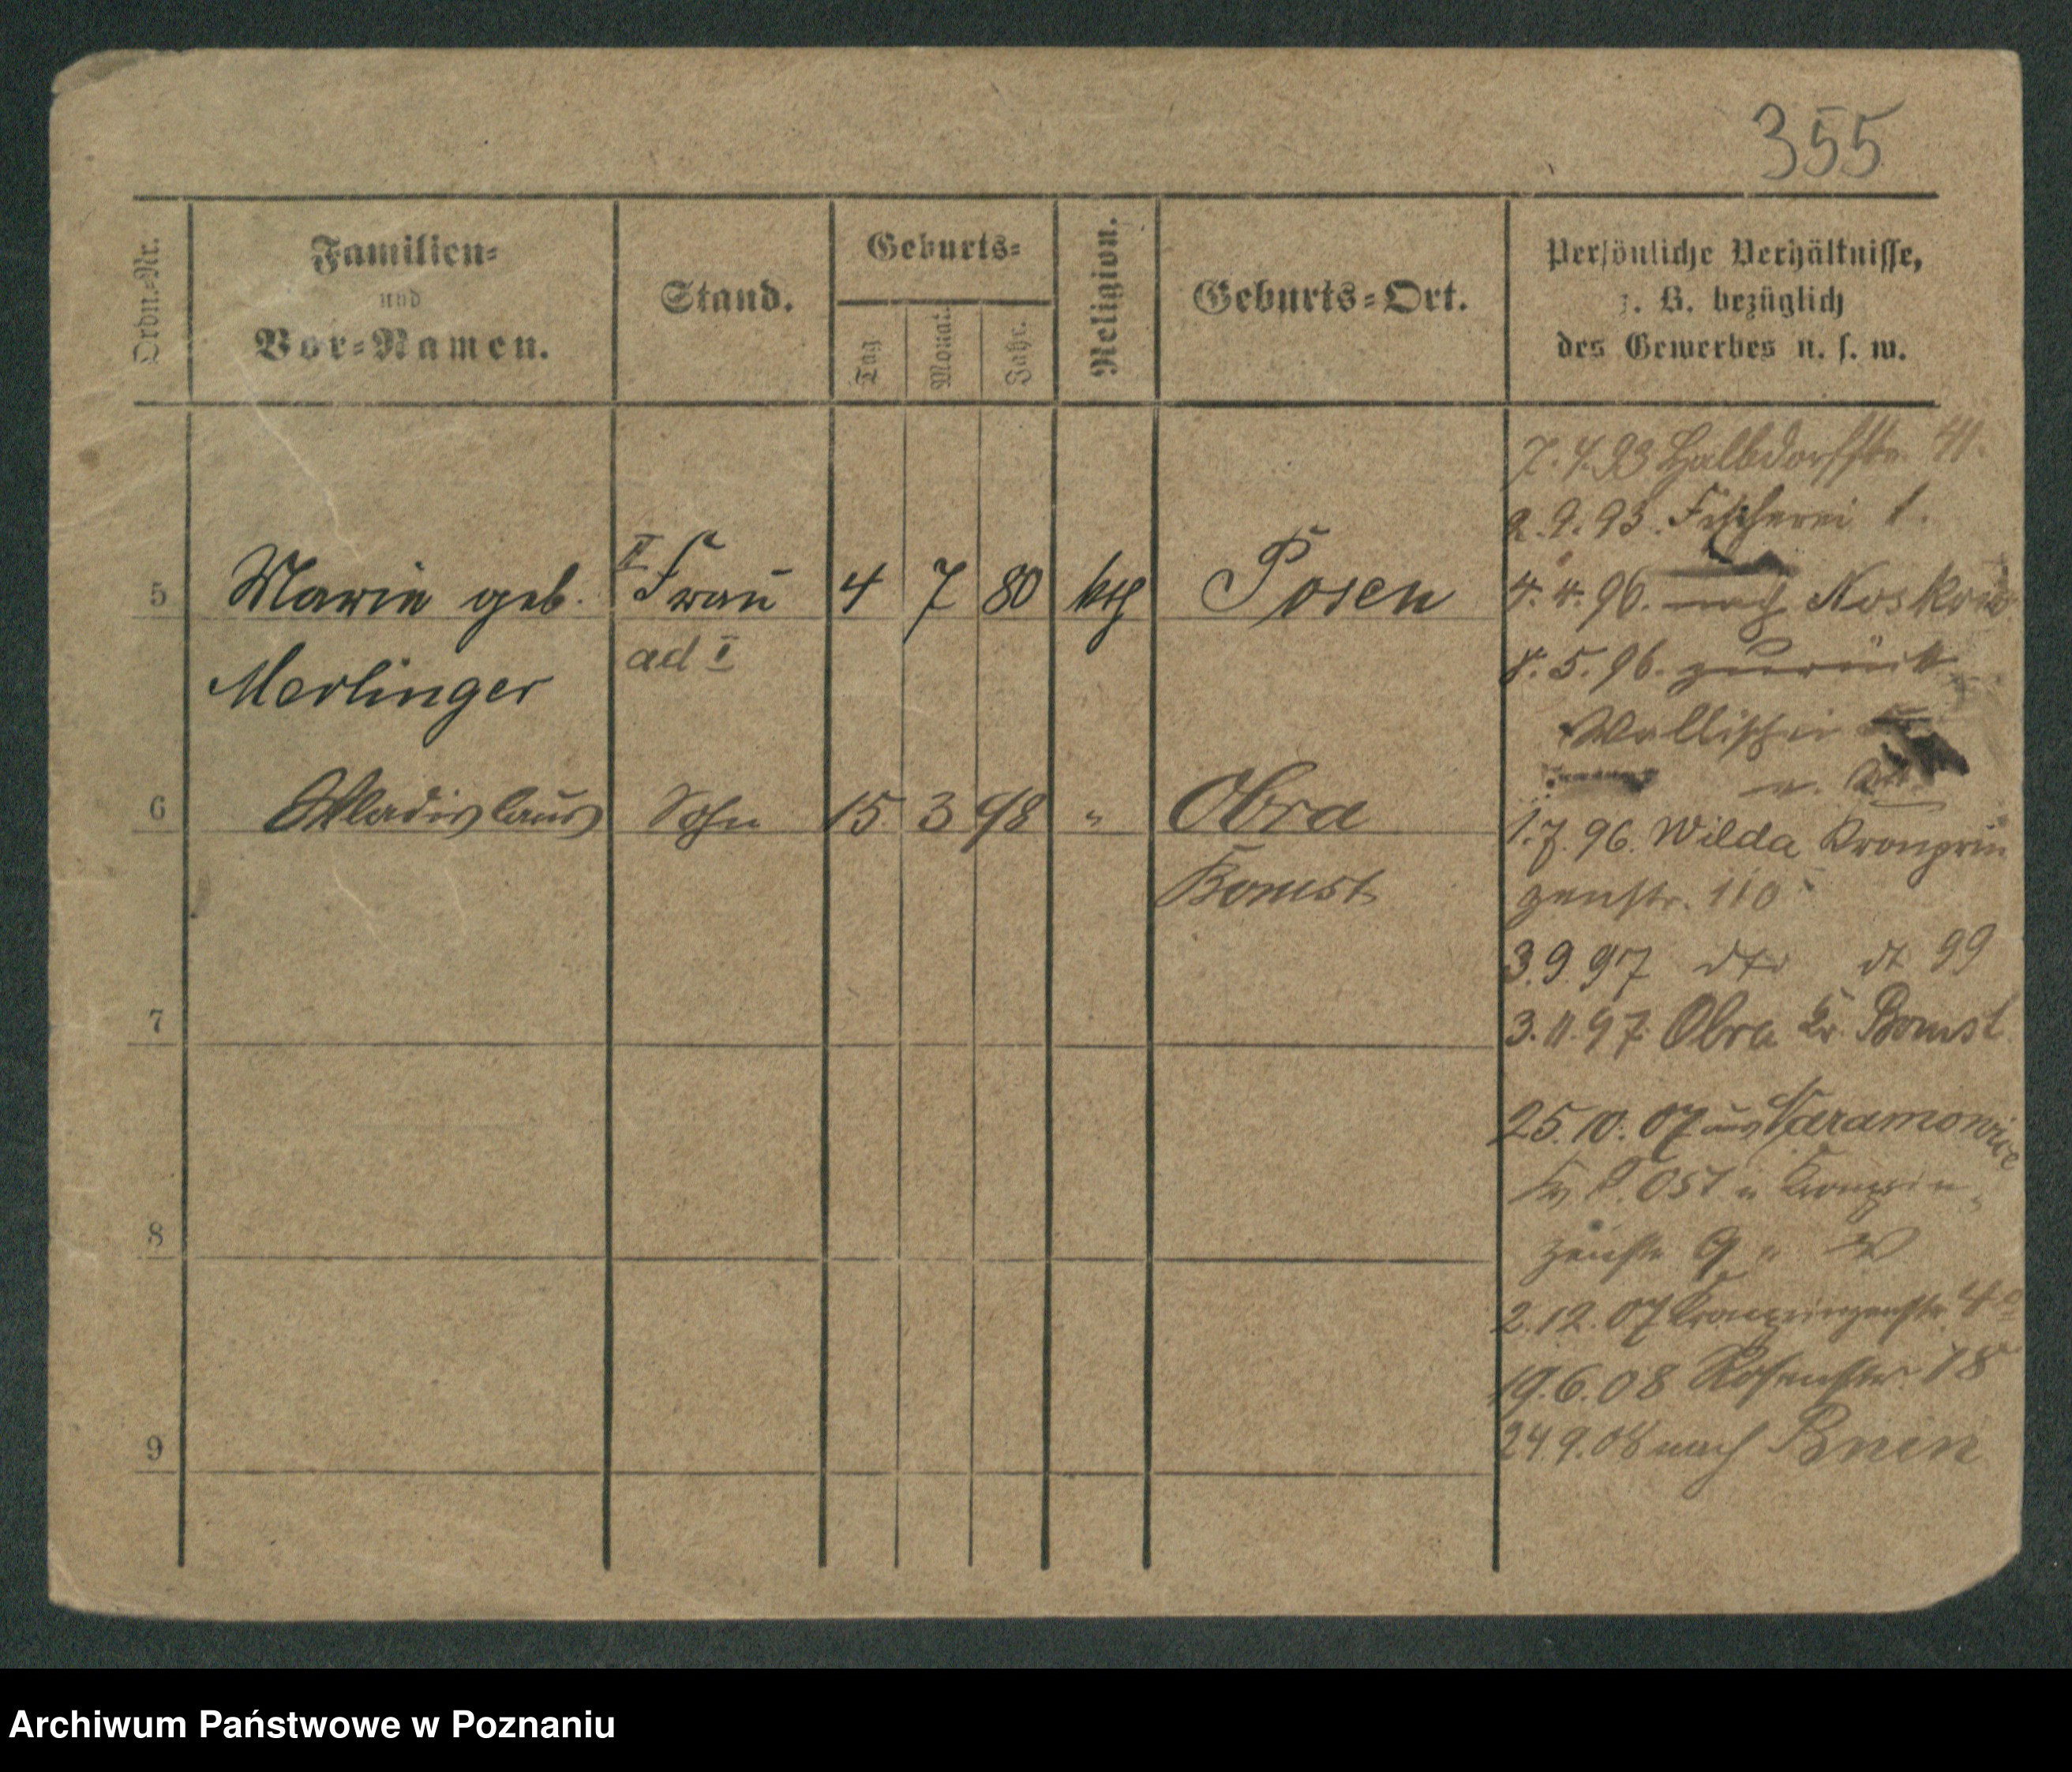 355
Ordn.-Nr.
Familien-
und
Vor-Namen.
Stand.
Geburts-
Tag
Monat.
Jahr.
Religion.
Geburts-Ort.
Persönliche Verhältnisse,
z. B. bezüglich
des Gewerbes u. s. w.
5
Marie geb.
Merlinger
II Frau
ad I
4 7 80
kth
Posen
6
Wladislaus
Sohn
15 3 98
"
Obra
Bomst
7
8
9
7.4.93 Halbdorfstr.
2.9.93. Fischerei 1.
4.4.96. nach
8.5.96. zurück
Wallischei
1.7.96. Wilda Kronprin
zenstr. 110
3.9.97 dto dt 99
3.11.97 Obra Kr. Bomst
25.10.07 aus
Kr. P. Ost Kronprin
zenstr 9
2.12.07 Kronprinzenstr. 4
19.6.08 Rosenstr. 18
24.9.08 nach Bnin
Archiwum Państwowe w Poznaniu